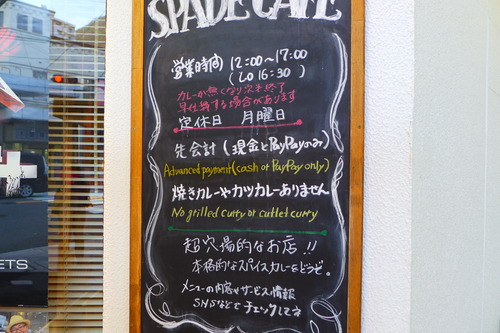 SPADE CAFE
営業時間 12:00~17:00
(LO 16:30)
カレーが無くなり次第終了
早仕舞する場合があります
定休日 月曜日
先会計(現金とPayPayのみ)
Advanced payment(cash or PayPay only)
焼きカレーやカツカレーありません
No grilled curry or cutlet curry
超穴場的なお店!!
本格的なスパイスカレーをどうぞ。
メニューの内容やサービス情報
SNSなどでチェックしてネ
ETS